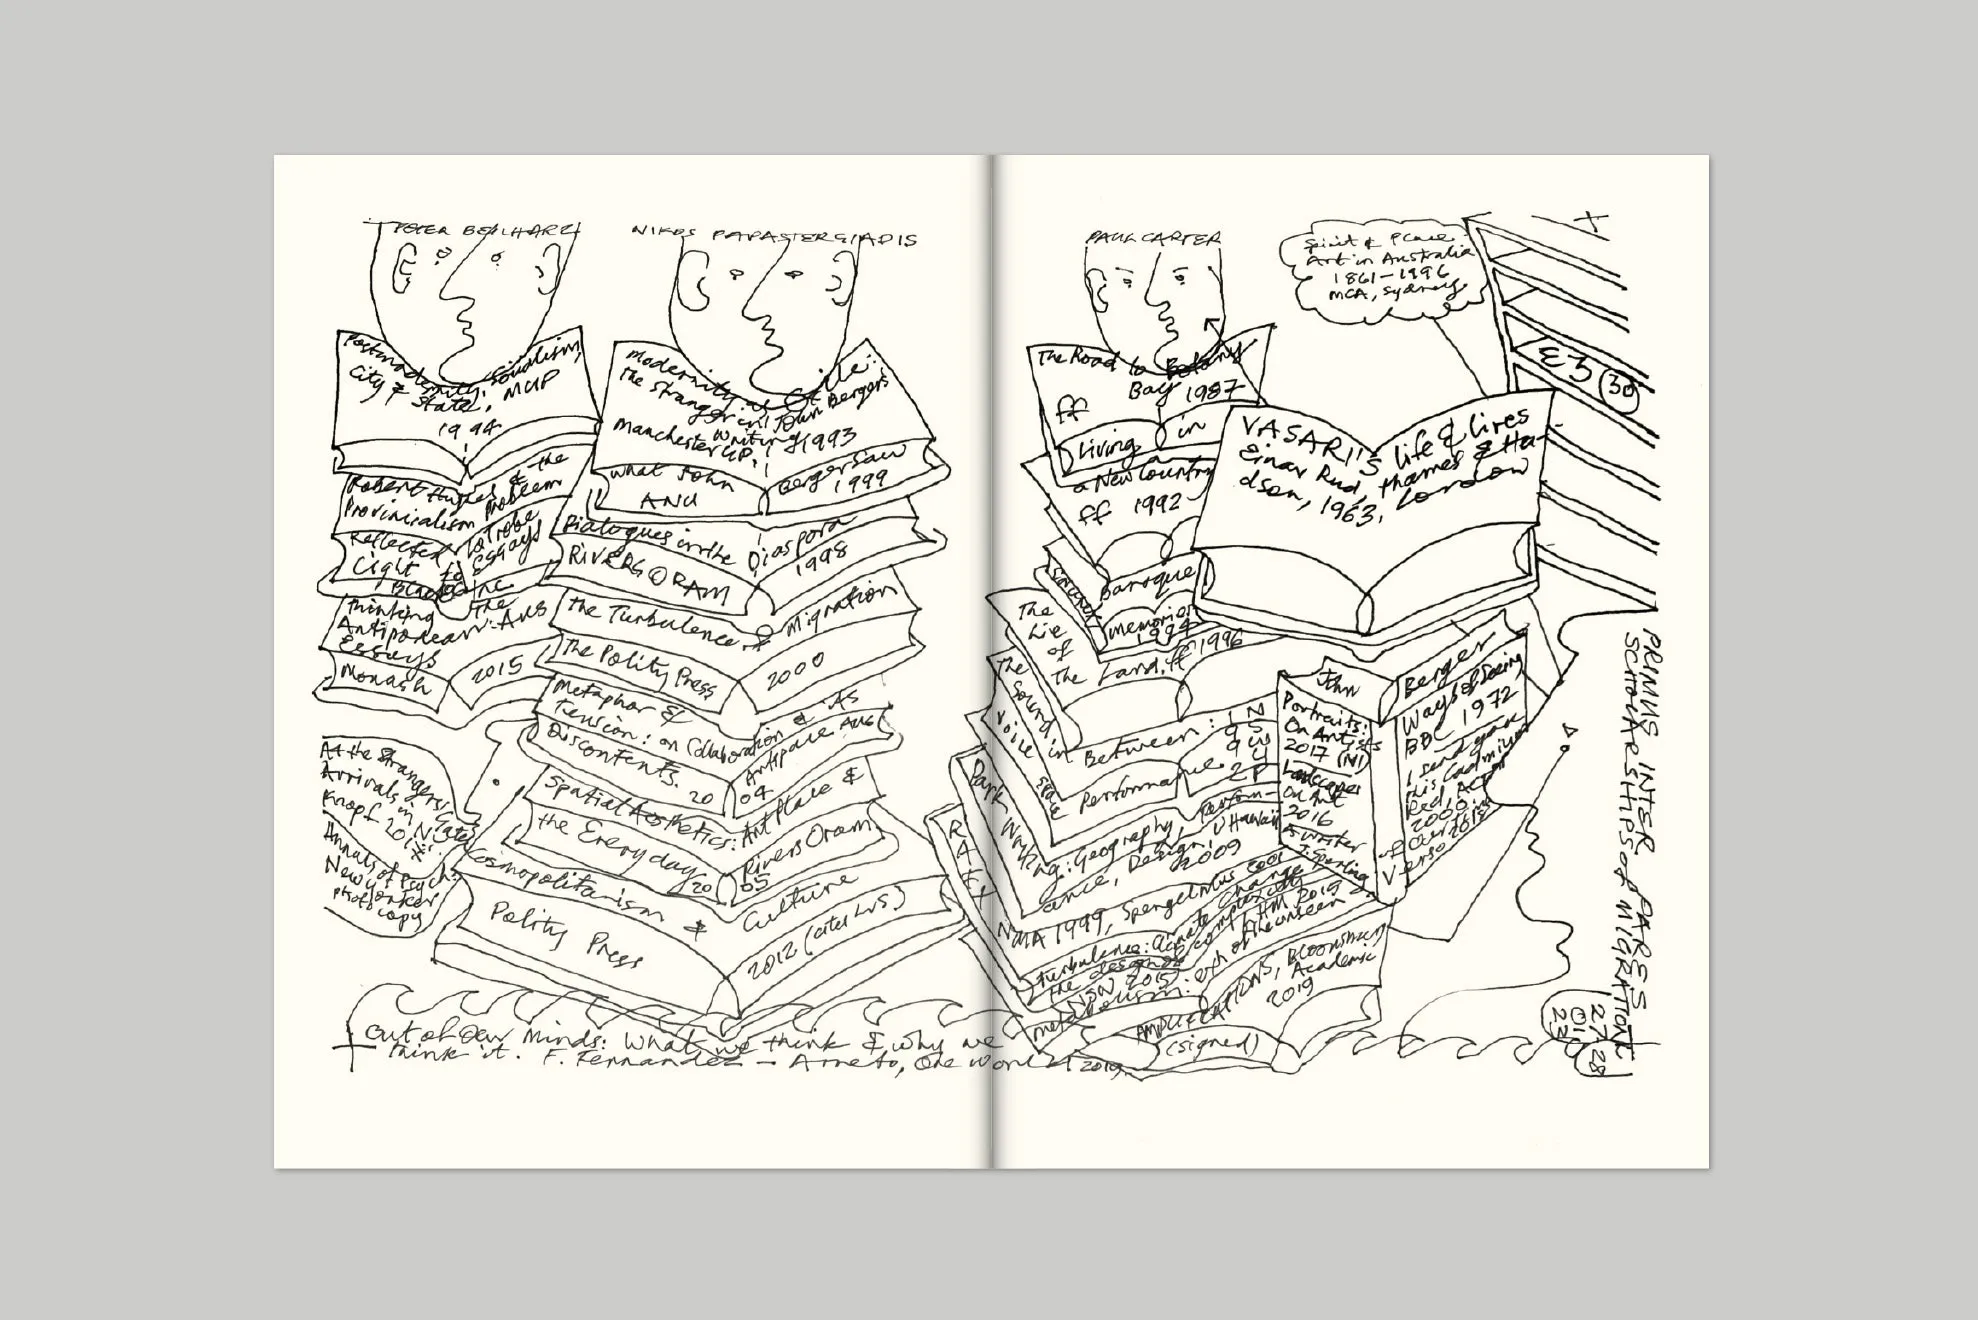 PETER BEILHARZ
Postmodernity: Socialism,
City & State, MUP
1994
Robert Hughes & the
Provincialism Problem
La Trobe
Essays
Reflected
Light
Black Inc
Thinking the
Antipodean: Aus
Essays
Monash
2015
At the Strangers'
Arrivals in N.
Knopf 20
Annals of Psych:
New Yorker
photocopy
NIKOS PAPASTERGIADIS
Modernity as Exile:
the Stranger in John Bergers
writing
Manchester UP, 1993
what John
Berger Saw
ANU
1999
Dialogues in the Diaspora
RIVERS ORAM
1998
the Turbulence of Migration
The Polity Press
2000
Metaphor &
Tension: on Collaboration & its
Discontents. 20 04
Artspace Aus
Spatial Aesthetics: Art Place &
the Everyday 20 05
Rivers Oram
Cosmopolitanism & Culture
Polity Press
2012 (
Out of our minds: What we think & why we
think it. F. Fernandez - Armesto, One world 2019
PAUL CARTER
The Road to Botany
Bay 1987
ff
Living in
a New Country
ff 1992
Baroque
memories
1994
The
Lie
of
The Land, ff 1996
The
Sound
in Between:
voice
space
Performance
Dark Writing: Geography, Perform-
ance, Design, U Hawaii
2009
NMA 1999, Spengelmus
Turbulence: Climate Change
the design of complexity
NSW 2015
of the unseen
AMPLIFICATIONS, Bloomsbury
Academic
2019
(signed)
Spirit & Place:
Art in Australia
1861-1996
MCA, Sydney
E3 30
VASARI'S life & lives
Einar Rud, thames & Hu-
dson, 1963, London
John Berger
Portraits:
On Artists
2017 (NY)
Landscapes
on Art
2016
A writer
J. Sperling
Verso 2018
Ways of Seeing
BBC 1972
I send you
this Cadmium
Red, ACTAR
2000
PRIMUS INTER PARES
SCHOLARSHIPS of MIGRATION
27
01
22
28